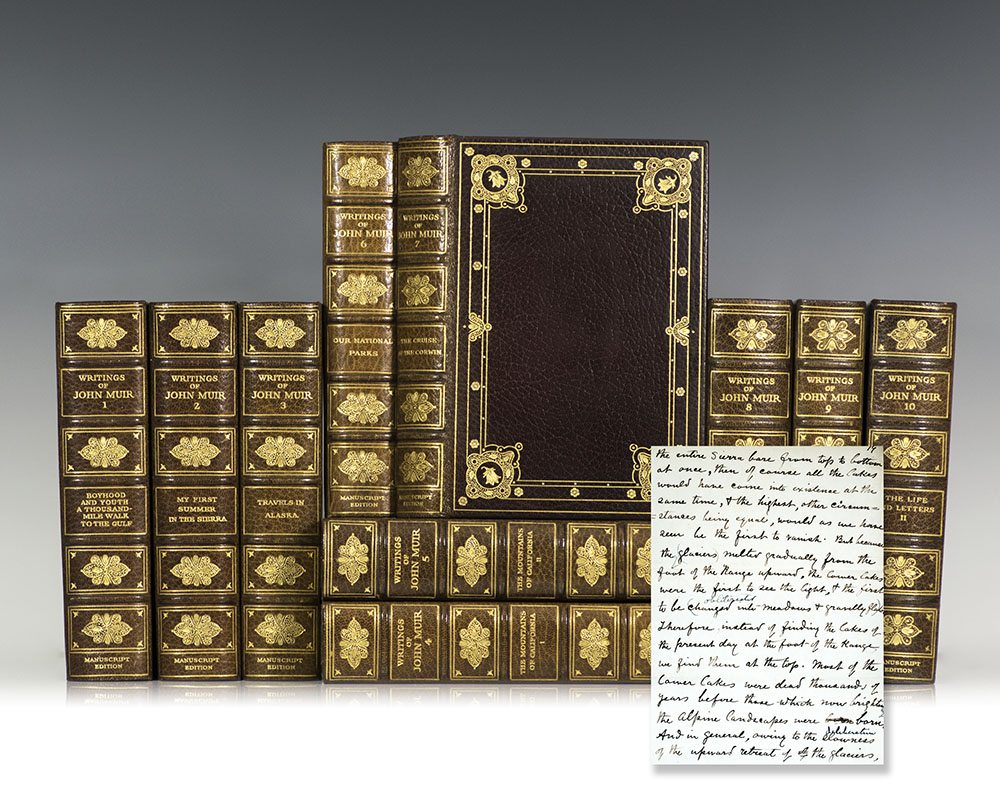 WRITINGS
OF
JOHN MUIR
1
BOYHOOD
AND YOUTH
A THOUSAND-
MILE WALK
TO THE GULF
MANUSCRIPT
EDITION
WRITINGS
OF
JOHN MUIR
2
MY FIRST
SUMMER
IN THE SIERRA
MANUSCRIPT
EDITION
WRITINGS
OF
JOHN MUIR
3
TRAVELS IN
ALASKA
MANUSCRIPT
EDITION
WRITINGS
OF
JOHN MUIR
6
OUR NATIONAL
PARKS
MANUSCRIPT
EDITION
WRITINGS
OF
JOHN MUIR
7
THE CRUISE
OF THE CORWIN
MANUSCRIPT
EDITION
WRITINGS
OF
JOHN MUIR
5
THE MOUNTAINS
OF CALIFORNIA
II
WRITINGS
OF
JOHN MUIR
4
THE MOUNTAINS
OF CALIFORNIA
WRITINGS
OF
JOHN MUIR
8
WRITINGS
OF
JOHN MUIR
9
WRITINGS
OF
JOHN MUIR
10
THE LIFE
AND LETTERS
II
the entire Sierra bare from top to bottom
at once, then of course all the Lakes
would have come into existence at the
same time, & the highest, other circum=
=stances being equal, would as we have
seen be the first to vanish. But because
the glaciers melted gradually from the
foot of the Range upward, the Lower Lakes
were the first to see the light, & the first
to be changed into meadows & gravelly
Therefore, instead of finding the Lakes of
the present day at the foot of the Range
we find them at the top. Most of the
Lower Lakes were dead thousands of
years before those which now brighten
the Alpine Landscapes were born.
deliberation
And in general, owing to the slowness
of the upward retreat of the glaciers,